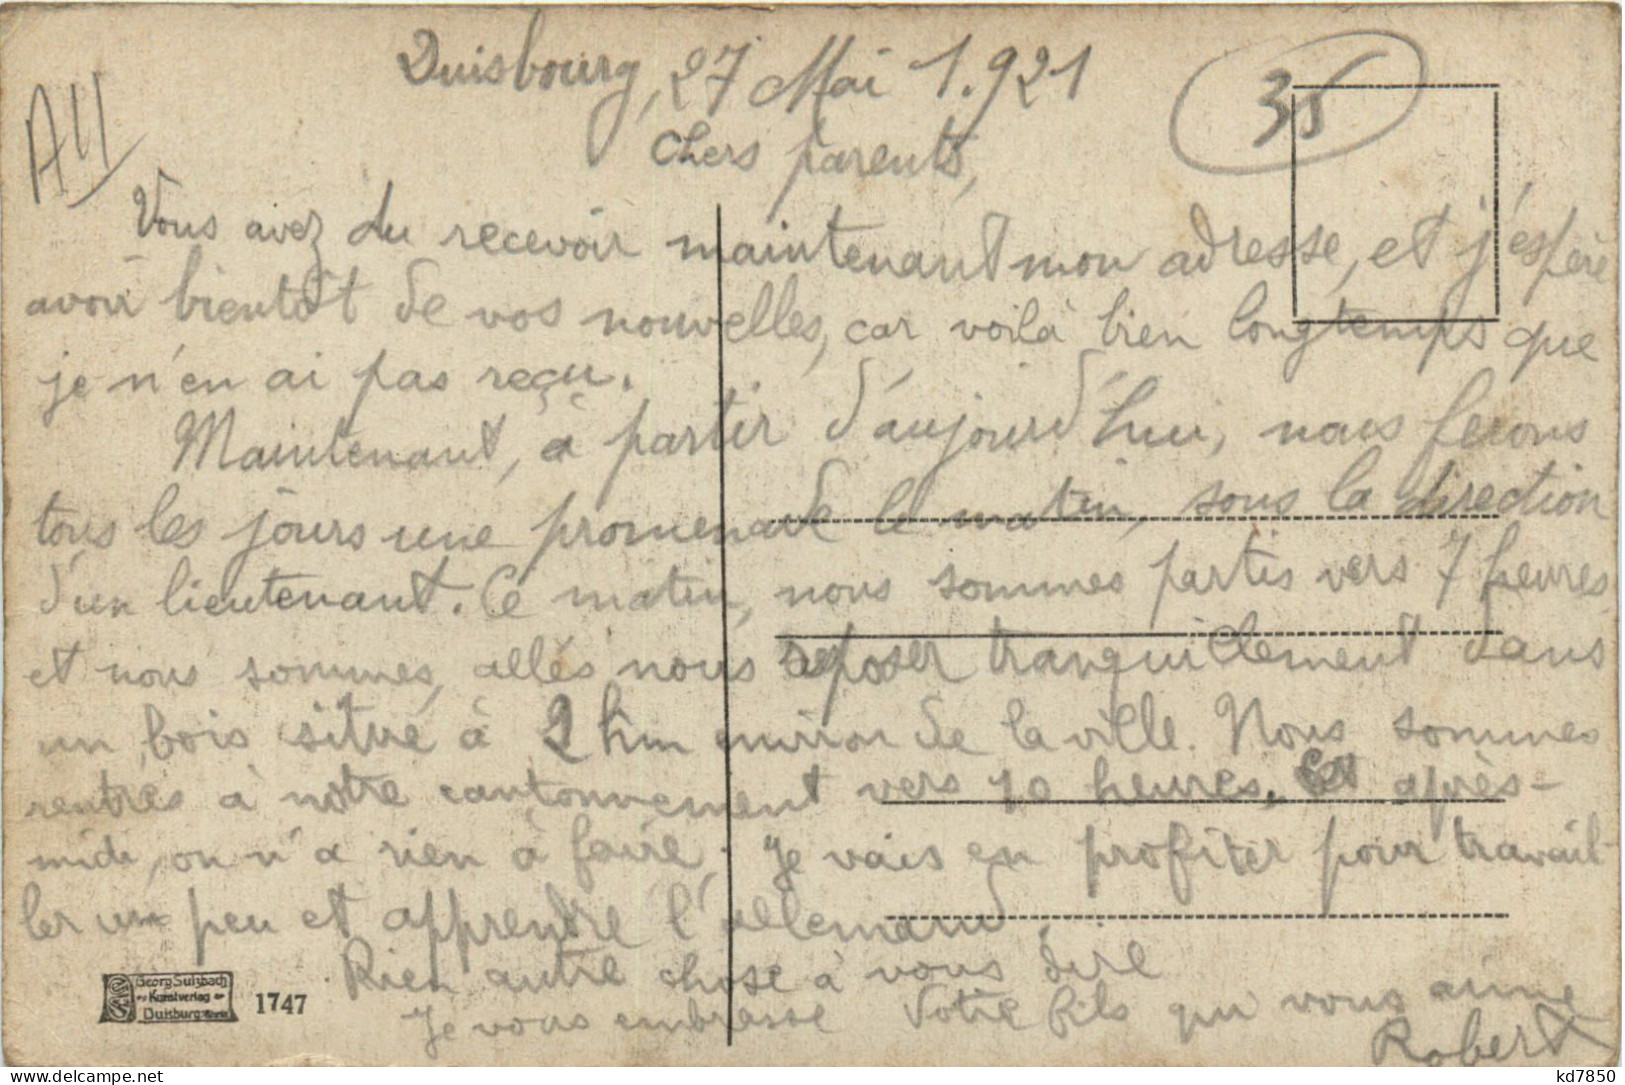 Duisbourg, 27 Mai 1.921
35
A4
Chers parents,
Vous avez du recevoir maintenant mon adresse, et j'espère
avoir bientôt de vos nouvelles, car voilà bien longtemps que
je n'en ai pas reçu.
Maintenant, à partir d'aujourd'hui, nous ferons
tous les jours une promenade le matin, sous la direction
d'un lieutenant. Ce matin, nous sommes partis vers 7 heures
et nous sommes, allés nous reposer tranquillement dans
un bois situé à 2 km environ de la ville. Nous sommes
rentrés à notre cantonnement vers 10 heures. Cet après-
midi, on n'a rien à faire. Je vais en profiter pour travail-
ler un peu et apprendre l'allemand.
Rien autre chose à vous dire
Je vous embrasse Votre fils qui vous aime
Robert
Georg Sulzbach
Kunstverlag
Duisburg
1747
kd7850